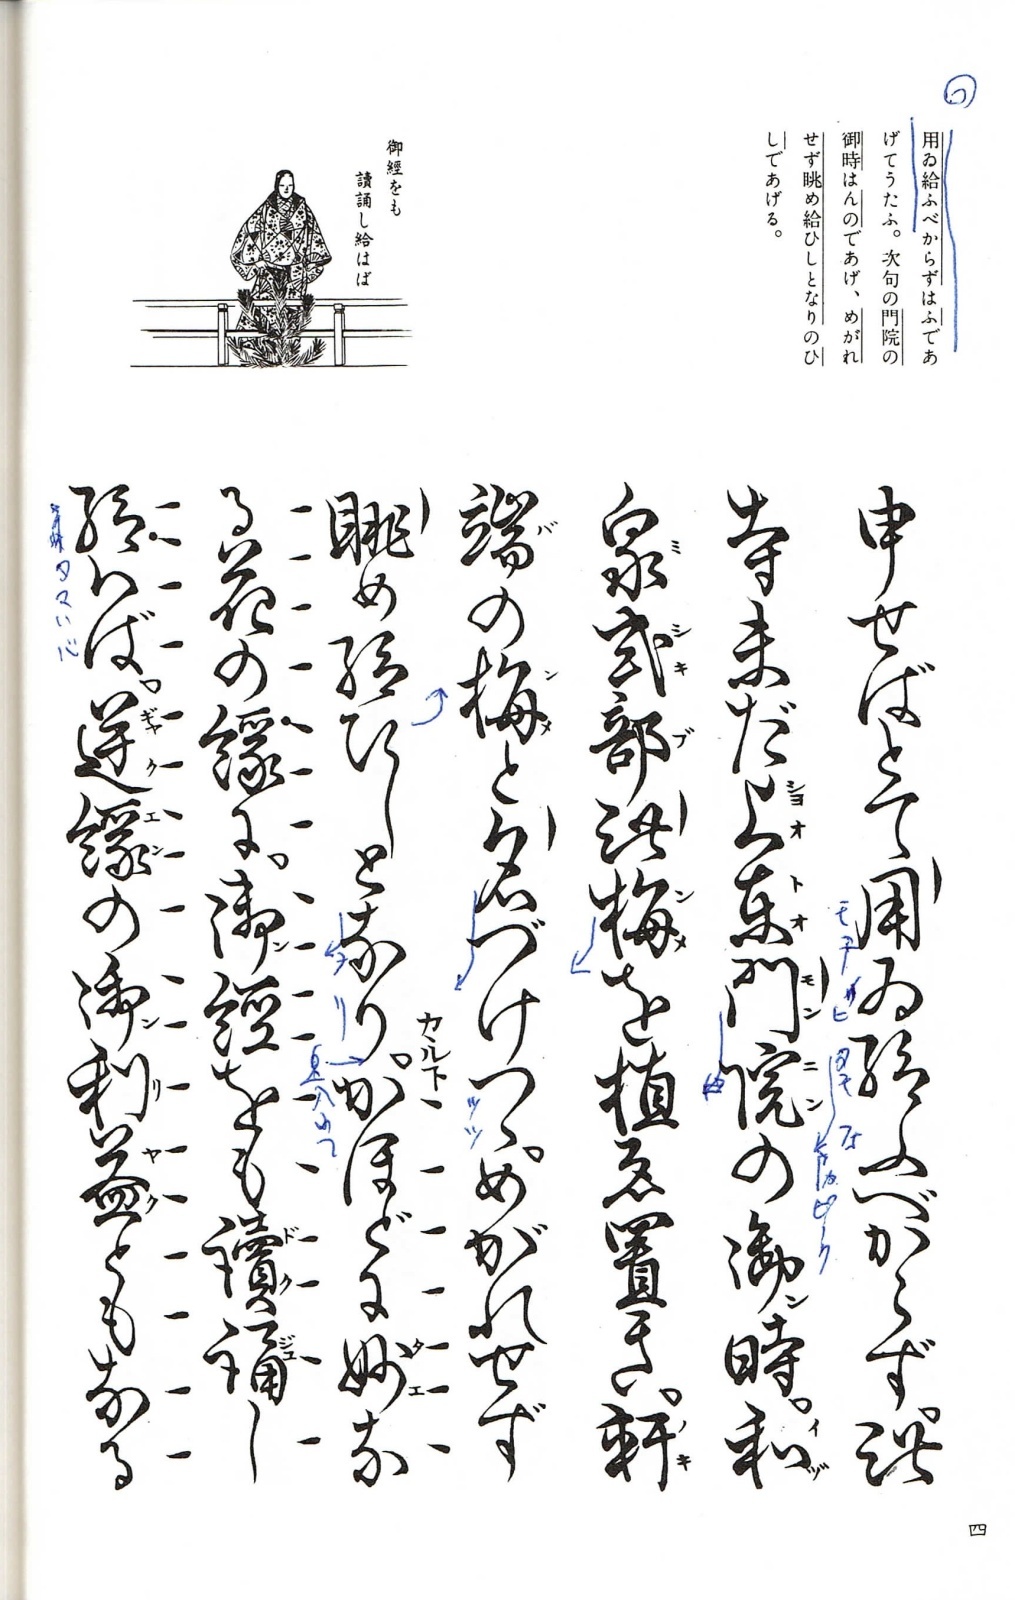 用ゐ給ふべからずはふであ
げてうたふ。次句の門院の
御時はんのであげ、めがれ
せず眺め給ひしとなりのひ
しであげる。
御經をも
讀誦し給はば
申せばとて用ゐ給ふべからず。此
寺未だ上東門院の御時。和
泉式部此梅を植ゑ置き。軒
端の梅と名づけつゝ。めがれせず
眺め給ひしとなり。かほどに妙な
カル下
る花の縁に。御經をも讀誦し
給はば。逆縁の御利益ともなる
四